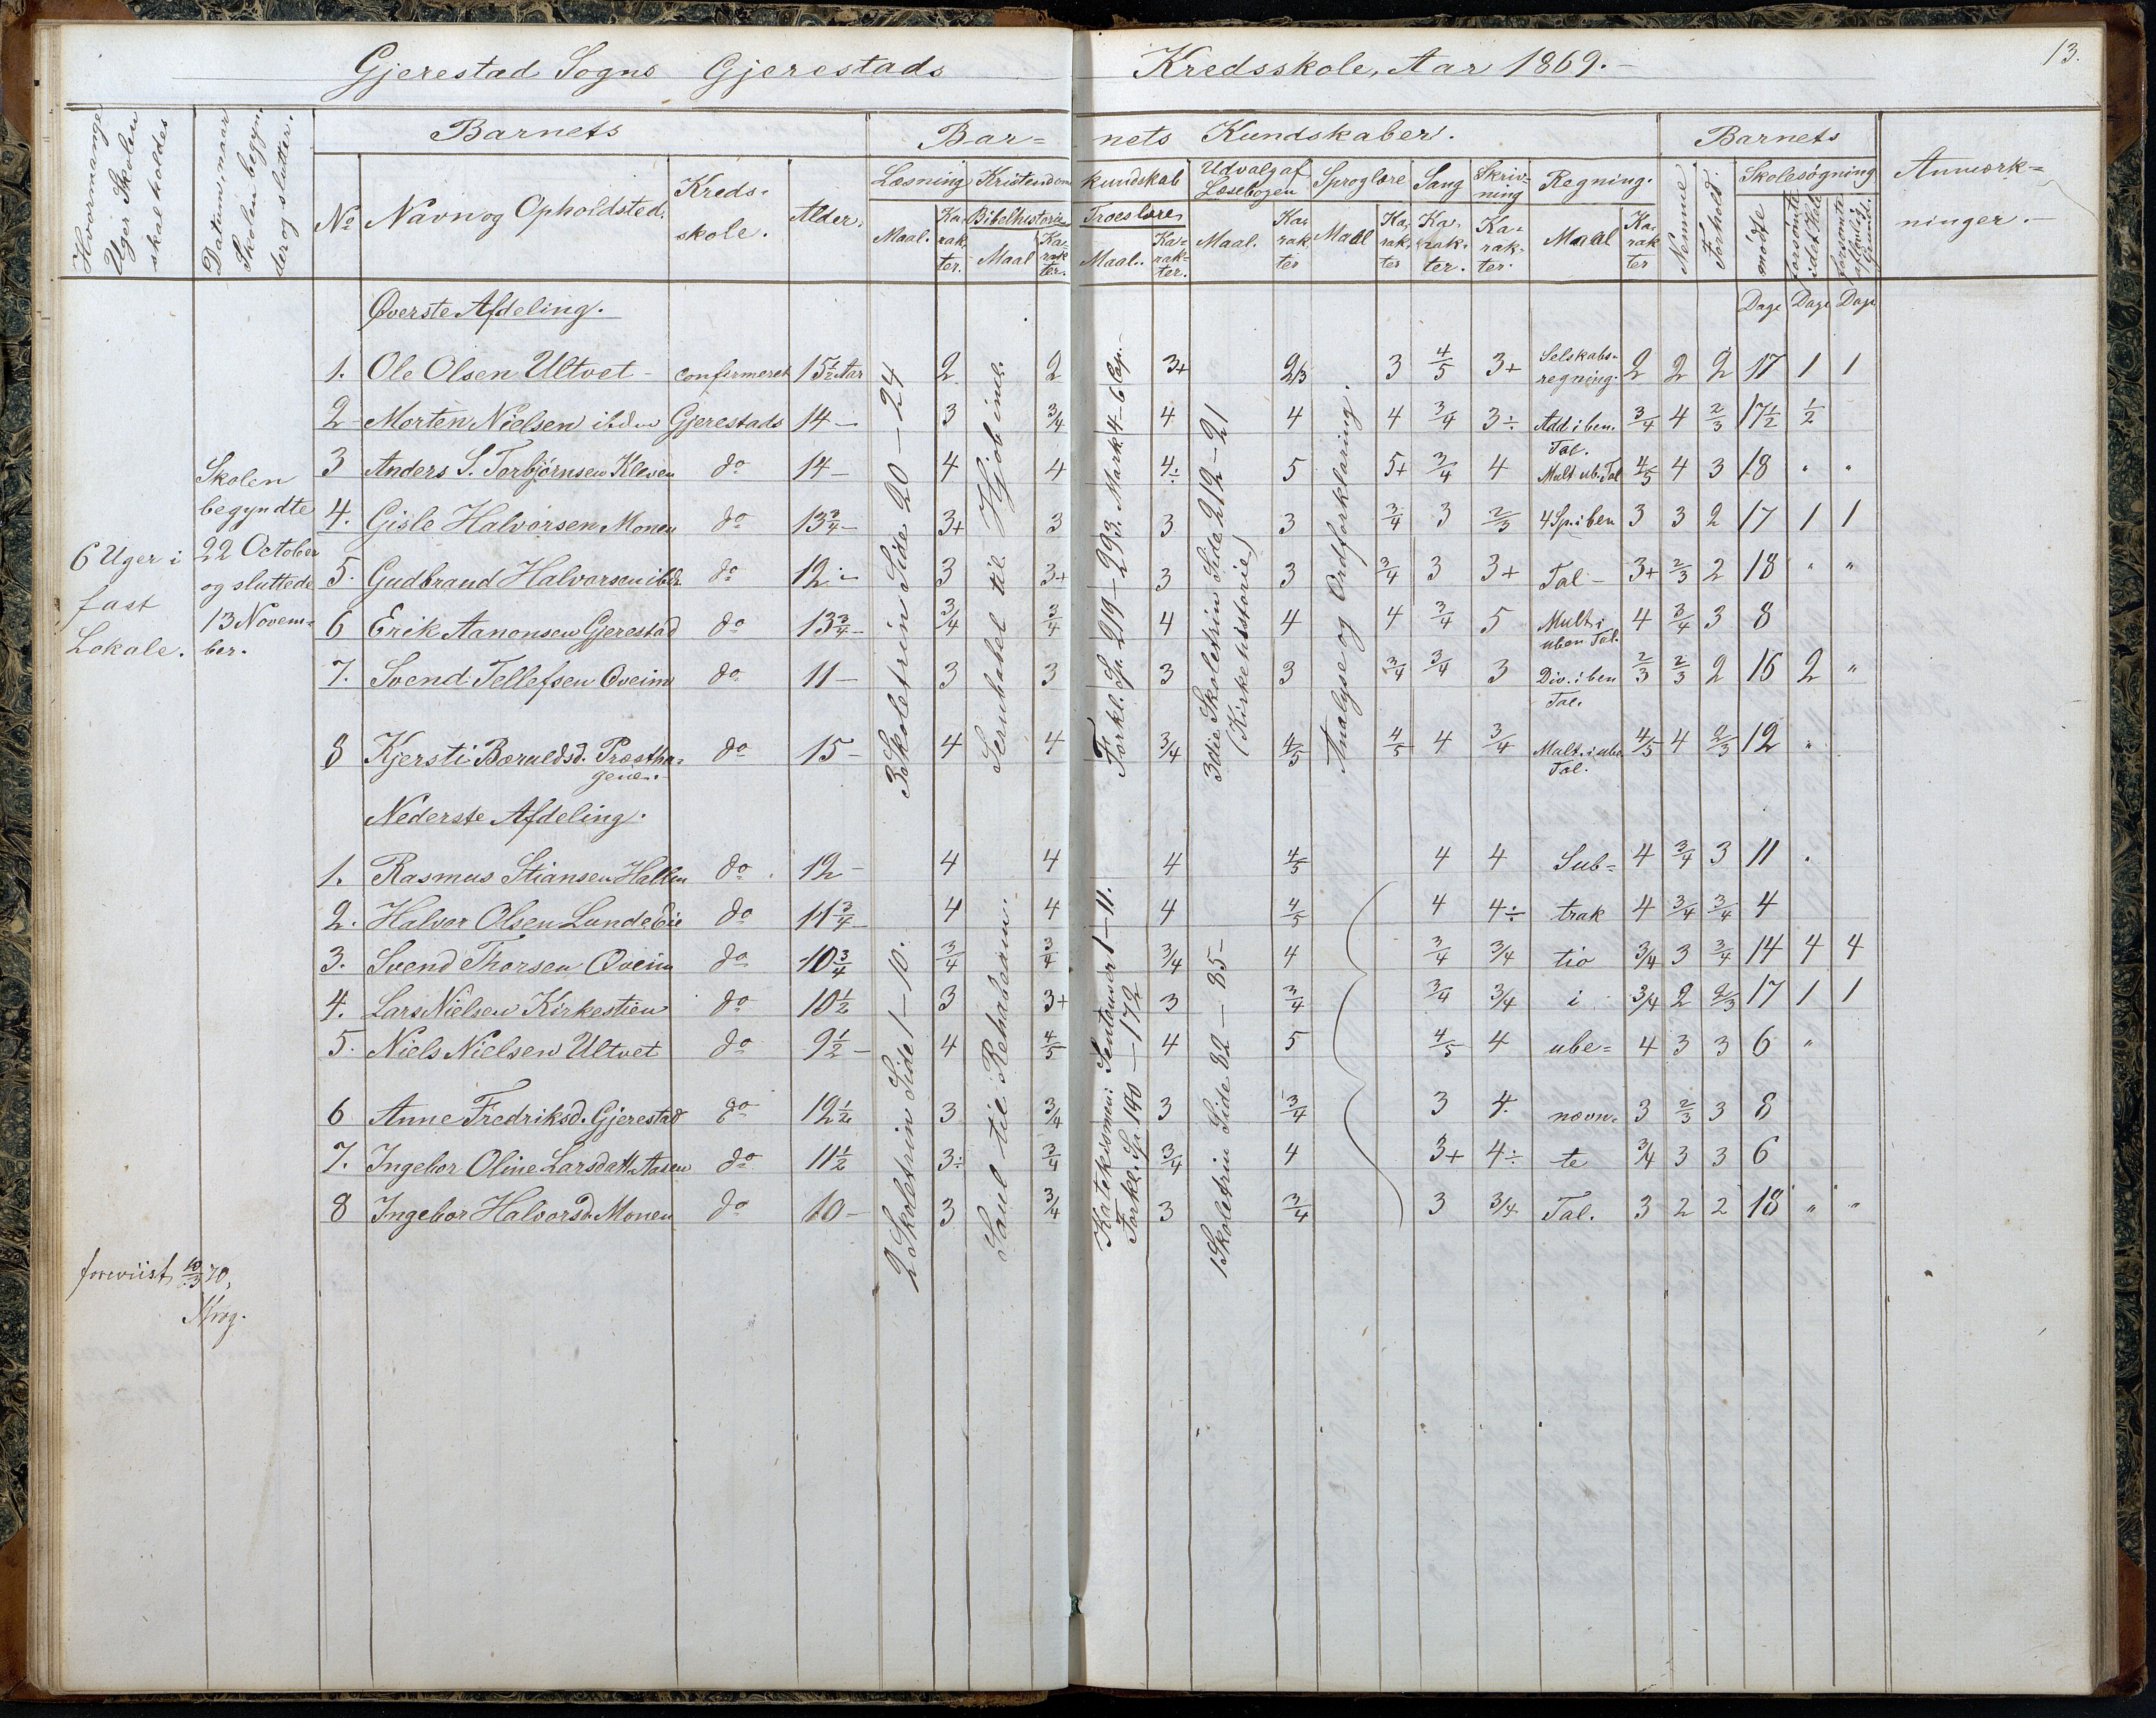 13.
Gjerestad Sogns Gjerestads Kredsskole, Aar 1869.
Hvormange Uger Skolen skal holdes
Datum, naar Skolen begynder og slutter.
Barnets
Bar= nets Kundskaber.
Barnets
Anmærk= ninger.
No
Navn og Opholdsted.
Kreds= skole.
Alder.
Læsning Kristendoms kundskab
Udvalg af Læsebogen
Sproglære
Sang
Skriv= ning
Regning.
Nemme
Forhold.
Skolesøgning
Maal. Ka= rak ter.
Bibelhistorie Maal Ka= rak ter.
Troeslære Maal. Ka= rak= ter.
Maal. Ka= rak ter
Maal Ka= rak= ter
Ka= rak= ter.
Ka= rak= ter.
Maal Ka= rak ter
mødte
forsømte i det Hele
forsømte af lovlig Grund.
Dage Dage Dage
6 Uger i
fast
Lokale.
Skolen
begyndte
22 October
og sluttede
13 Novem=
ber.
Øverste Afdeling.
3 Skoletrin Side 20 – 24
Sernbabel til Hjob ind.
Forkl. Sp. 219 – 293. Mark. 4–6 Cp.
3die Skoletrin Side 219 – 21
(Kirkehistorie)
Analyse og Ordforklaring.
1. Ole Olsen Ultvet confirmeret 15½ Aar 2 2 3+ 2/3 3 4/5 3+ Selskabs= regning. 2 2 2 17 1 1
2 Morten Nielsen ibdm Gjerestads 14 – 3 3/4 4 4 4 3/4 3÷ Add i ben. Tal. 3/4 4 2/3 17½ ½
3 Anders S. Torbjørnsen Kleven do 14 – 4 4 4÷ 5 5+ 3/4 4 Mult ub. Tal 4/5 4 3 18 " "
4. Gisle Halvorsen Monen do 13¾ – 3+ 3 3 3 3/4 3 2/3 4 Sp. i ben 3 3 2 17 1 1
5. Gudbrand Halvorsen ibd. do 12 – 3 3+ 3 3 3/4 3 3+ Tal – 3+ 2/3 2 18 " "
6 Erik Aanonsen Gjerestad do 13¾ – 3/4 3/4 4 4 4 3/4 5 Mult i uben Tal. 4 3/4 3 8
7. Svend Tellefsen Øveim do 11 – 3 3 3 3 3/4 3/4 3 Div. i ben Tal. 2/3 2/3 2 16 2 "
8 Kjersti Bæruldsd. Præstha= gene. do 15 – 4 4 3/4 4/5 4/5 4 3/4 Mult. i ube Tal. 4/5 4 2/3 12 "
Nederste Afdeling.
2 Skoletrin Side 1 – 10.
Saul til Rehabeam.
Katekismen: Sentenser 1 – 11.
Forkl. Sp. 140 – 172
1 Skoletrin Side 82 – 85
1. Rasmus Stiansen Hallen do 12 – 4 4 4 4/5 4 4 Sub= 4 3/4 3 11 "
2. Halvor Olsen Lunde Eie do 11¾ 4 4 4 4/5 4 4÷ trak 4 3/4 3/4 4
3. Svend Thorsen Øveim do 10¾ 3/4 3/4 3/4 4 3/4 3/4 tio 3/4 3 3/4 14 4 4
4. Lars Nielsen Kirkestien do 10½ 3 3+ 3 3/4 3/4 3/4 i 3/4 2 2/3 17 1 1
5. Niels Nielsen Ultvet do 9½ – 4 4/5 4 5 4/5 4 ube= 4 3 3 6 "
6 Anne Fredriksd. Gjerestad do 12½ 3 3/4 3 3/4 3 4. nævn= 3 2/3 3 8
7. Ingebor Oline Larsdatt. Aasen do 11½ 3÷ 3/4 3/4 4 3+ 4÷ te 3/4 3 3 6
8 Ingebor Halvorsd. Monen do 10 – 3 3/4 3 3/4 3 3/4 Tal. 3 2 2 18 " "
foreviist 10/3 70,
Krog.